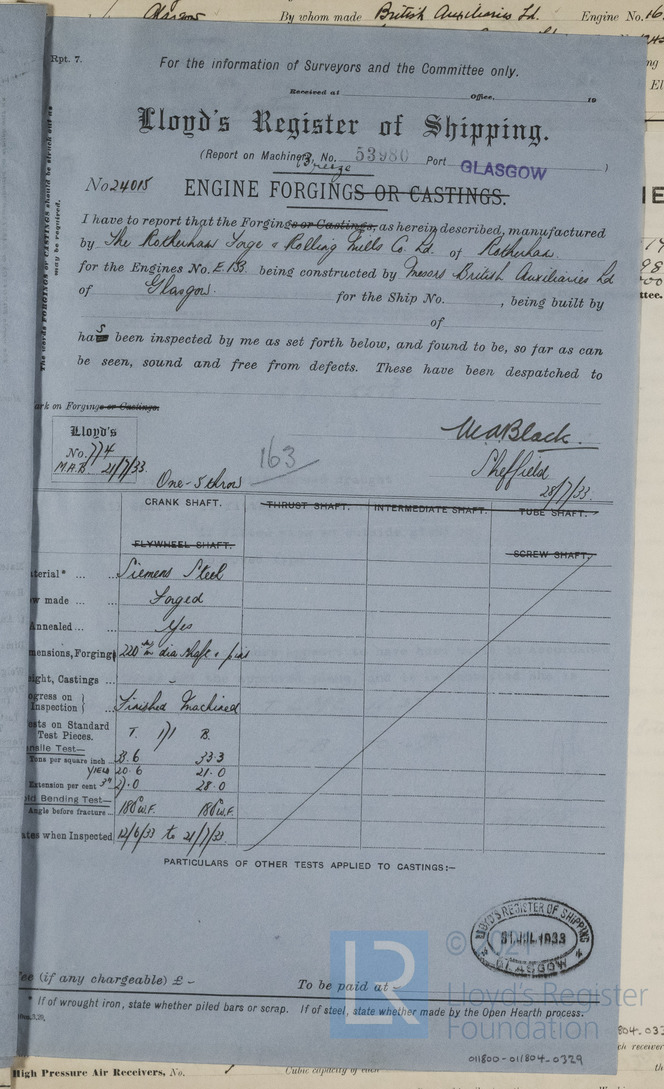 Glasgow By whom made British Auxiliaries Ld. Engine No. 16
Rpt. 7.
For the information of Surveyors and the Committee only.
Received at Office, 19
Lloyd's Register of Shipping.
(Report on Machinery, No. 53980 Port GLASGOW )
Breeze
No 24015 ENGINE FORGINGS OR CASTINGS.
The words FORGINGS or CASTINGS should be struck out as
may be required.
I have to report that the Forgings or Castings, as herein described, manufactured
by The Rotherham Forge & Rolling Mills Co. Ld. of Rotherham
for the Engines No. E.133. being constructed by Messrs British Auxiliaries Ld
of Glasgow. for the Ship No. , being built by
of
has been inspected by me as set forth below, and found to be, so far as can
be seen, sound and free from defects. These have been despatched to
ark on Forgings or Castings.
Lloyd's
No. 774
M.A.B. 21/7/33.
M A Black.
Sheffield
28/7/33.
163
One - 5 throw
CRANK SHAFT. THRUST SHAFT. INTERMEDIATE SHAFT. TUBE SHAFT.
FLYWHEEL SHAFT. SCREW SHAFT.
terial* ... ... Siemens Steel
w made ... ... Forged
Annealed... ... Yes
mensions, Forging 220 m/m dia shaft & pins
ight, Castings ... -
ogress on
Inspection } ... Finished Machined
sts on Standard
Test Pieces. T. 1/1 B.
nsile Test—
Tons per square inch 33.3
YIELD 20.6 21.0
Extension per cent 3" 28.0
ld Bending Test—
Angle before fracture 180° W.F. 180° W.F.
tes when Inspected 12/6/33 to 21/7/33
PARTICULARS OF OTHER TESTS APPLIED TO CASTINGS:—
LLOYD'S REGISTER OF SHIPPING
31 JUL 1933
GLASGOW
ee (if any chargeable) £ - To be paid at -
* If of wrought iron, state whether piled bars or scrap. If of steel, state whether made by the Open Hearth process.
© 2021
LR
Lloyd's Register
Foundation
011800-011804-0329
High Pressure Air Receivers, No. Cubic capacity of each